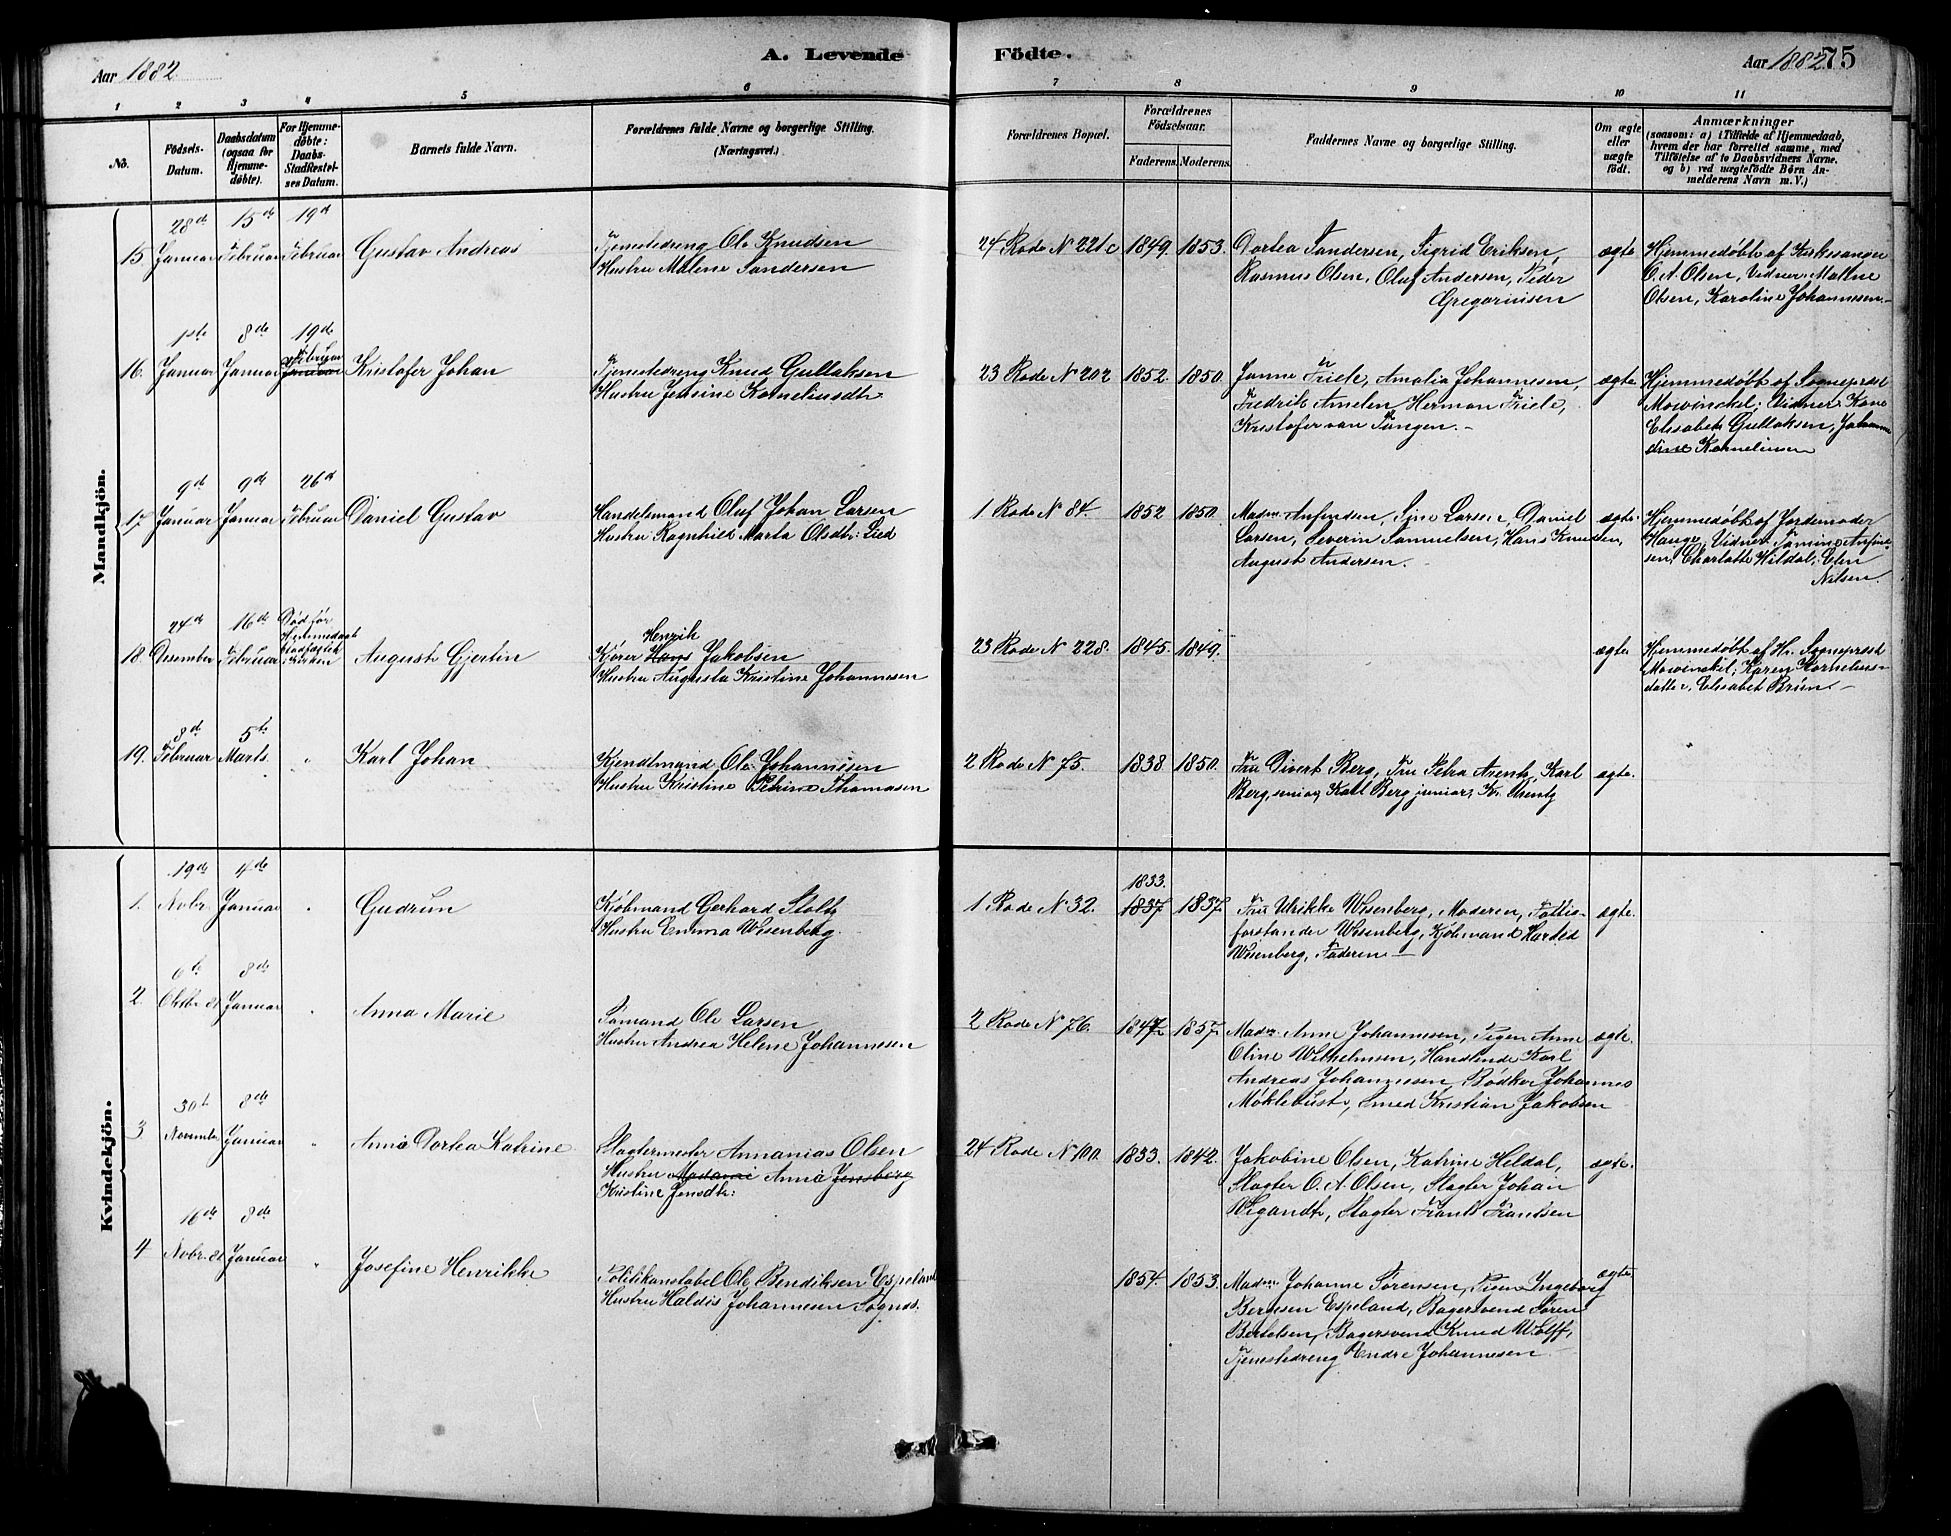 Aar 1882
A. Levende
Födte.
Aar 1882
75
1 2 3 4 5 6 7 8 9 10 11
No.
Födsels-
Datum.
Daabsdatum
(ogsaa for
Hjemme-
döbte).
For Hjemme-
döbte:
Daabs-
Stadfæstel-
ses Datum.
Barnets fulde Navn.
Forældrenes fulde Navne og borgerlige Stilling.
(Næringsvei.)
Forældrenes Bopæl.
Forældrenes
Födselsaar.
Faderens. Moderens.
Faddernes Navne og borgerlige Stilling.
Om ægte
eller
uægte
födt.
Anmærkninger
(saasom: a) i Tilfælde af Hjemmedaab,
hvem der har forrettet samme, med
Tilföielse af to Daabsvidners Navne,
og b) ved uægtefödte Börn An-
melderens Navn m. V.)
Mandkjön.
28de 15de 19de
15 Januar Februar Februar Gustav Andreas
Tjenestedreng Ole Knudsen
Hustru Malene Sandersen
24 Rode N 221c 1849. 1853.
Dortea Sandersen, Sigrid Eriksen,
Rasmus Olsen, Oluf Andersen, Peder
Gregoriusen
ægte
Hjemmedøbt af Kirkesanger
O. A. Olsen, Vidner: Maline
Olsen, Karoline Johannesen.-
1ste 8de 19de
Februar
16. Januar Januar Januar Kristofer Johan
Tjenestedreng Knud Gullaksen
Hustru Jensine Korneliusdtr
23 Rode N 202 1852. 1850.
Janna Friele, Amalia Johannesen,
Fredrik Amelen, Herman Friele,
Kristofer van Tangen.-
ægte
Hjemmedøbt af Sogneprest
Mowinckel; Vidner: Kone
Elisabeth Gullaksen, Johanne
dine Kornelius­en
9de 9de 26de
17 Januar Januar Februar Daniel Gustav
Handelsmand Oluf Johan Larsen
Hustru Ragnhild Marta Olsdtr: Lied
1 Rode N 84. 1852 1850.
Madm Anfindsen, Sine Larsen, Daniel
Larsen, Severin Samuelsen, Hans Knudsen,
August Andersen.
ægte.
Hjemmedøbt af Jordemoder
Hauge, Vidner: Tamine Anfind-
sen, Charlotte Hildal, Elen
Nilsen.
24de 16de Død før
Hjemmedaab
stadfæstet
i Kirken
18. Desember Februar August Gjertin
Henrik
Kjører Hans Jakobsen
Hustru Augusta Kristine Johannesen
23 Rode N 228. 1845. 1849.
ægte
Hjemmedøbt af Hr. Sogneprest
Mowinckel; Karen Kornelius-
datter, Elisabet Brün.-
8de 5te
19. Februar Marts. " Karl Johan
Kjendtmand Ole Johannesen
Hustru Kristine Petrine Thomasen
2 Rode N 75. 1838 1850.
Fru Divert Berg, Fru Petra Arentz, Karl
Berg, senior, Karl Berg junior, Kr. Arentz
ægte.
Kvindekjön.
19de 4de
1. Nobr. Januar " Gudrun
Kjøbmand Gerhard Stoltz
Hustru Emma Wesenberg
1833.
1 Rode N 32. 1837 1837.
Fru Ulrikke Wesenberg, Moderen, Fattig-
forstander Wesenberg, Kjøbmand Hartvid
Wesenberg, Faderen.-
ægte.
6te 8de
2. Oktbr 81 Januar " Anna Marie
Sømand Ole Larsen
Hustru Andrea Helene Johannesen
2 Rode N 76. 1847 1857.
Madm. Anne Johannesen, Pigen Anne
Oline Wilhelmsen, Handlende Karl
Andreas Johannesen, Bødker Johannes
Møklebust, Smed Kristian Jakobsen
ægte.
30te 8de
3 November Januar " Anna Dortea Katrine
Slagtermester Annanias Olsen
Hustru Anna Jensberg
Kristine Jensdtr:
24 Rode N 100. 1833. 1842.
Jakobine Olsen, Katrine Heldal,
Slagter O. A. Olsen, Slagter Johan
Wigandt, Slagter Frants Frantsen
ægte.
16de 8de
4 Nobr. 81 Januar " Josefine Henrikke
Politikonstabel Ole Bendiksen Espeland
Hustru Haldis Johannesen Sognds.
1854. 1853.
Madm. Johanne Sørensen, Pigen Ingeborg
Berntsen Espeland, Bagersvend Søren
Bertelsen, Bagersvend Knud Wolff,
Tjenestedreng Endre Johannesen.-
ægte